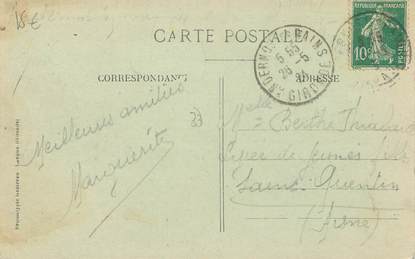 15€
CARTE POSTALE
CORRESPONDANCE
ADRESSE
RÉPUBLIQUE FRANÇAISE
10c
ANDERNOS-LES-BAINS
GIRONDE
33
Meilleures amitiés
Marguerite
Melle Berthe
Lycée de Jeunes filles
Saint-Quentin
(Aisne)